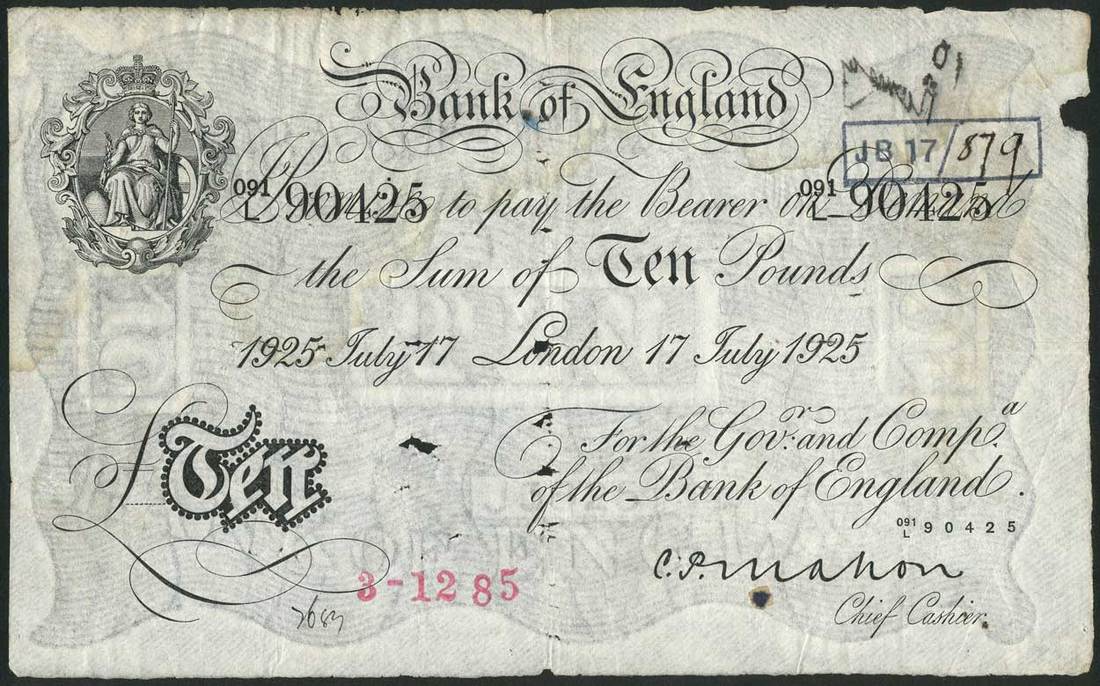 Bank of England
JB 17/879
091
L 90425
091
L 90425
I Promise to pay the Bearer on Demand
the Sum of Ten Pounds
1925 July 17 London 17 July 1925
For the Govr. and Compa.
of the Bank of England.
£Ten
091
L 90425
C.P. Mahon
Chief Cashier.
3-1285